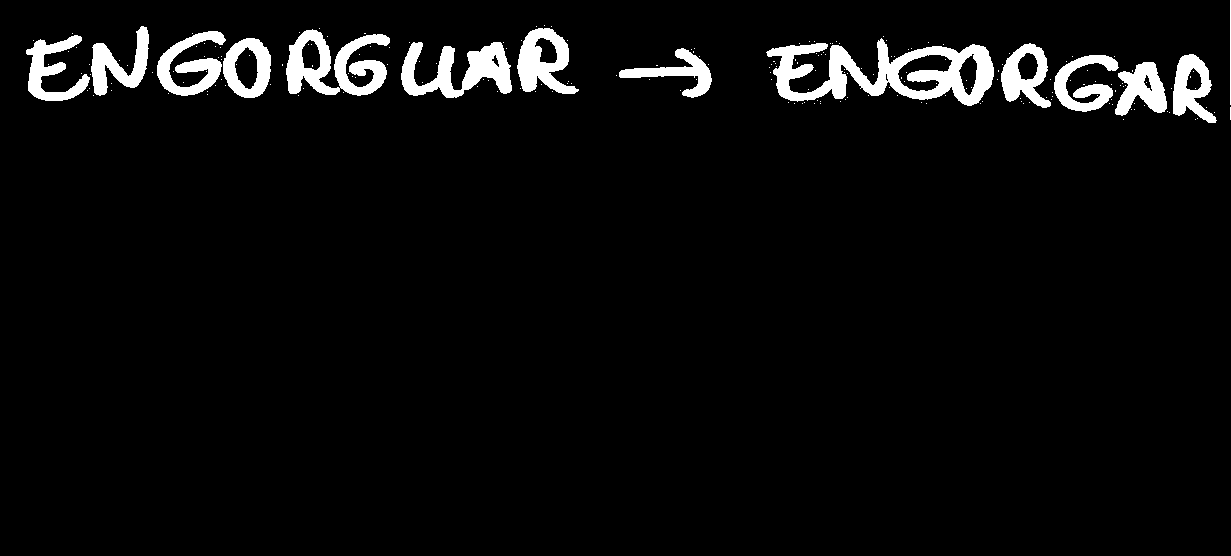 ENGORGUAR → ENGORGAR